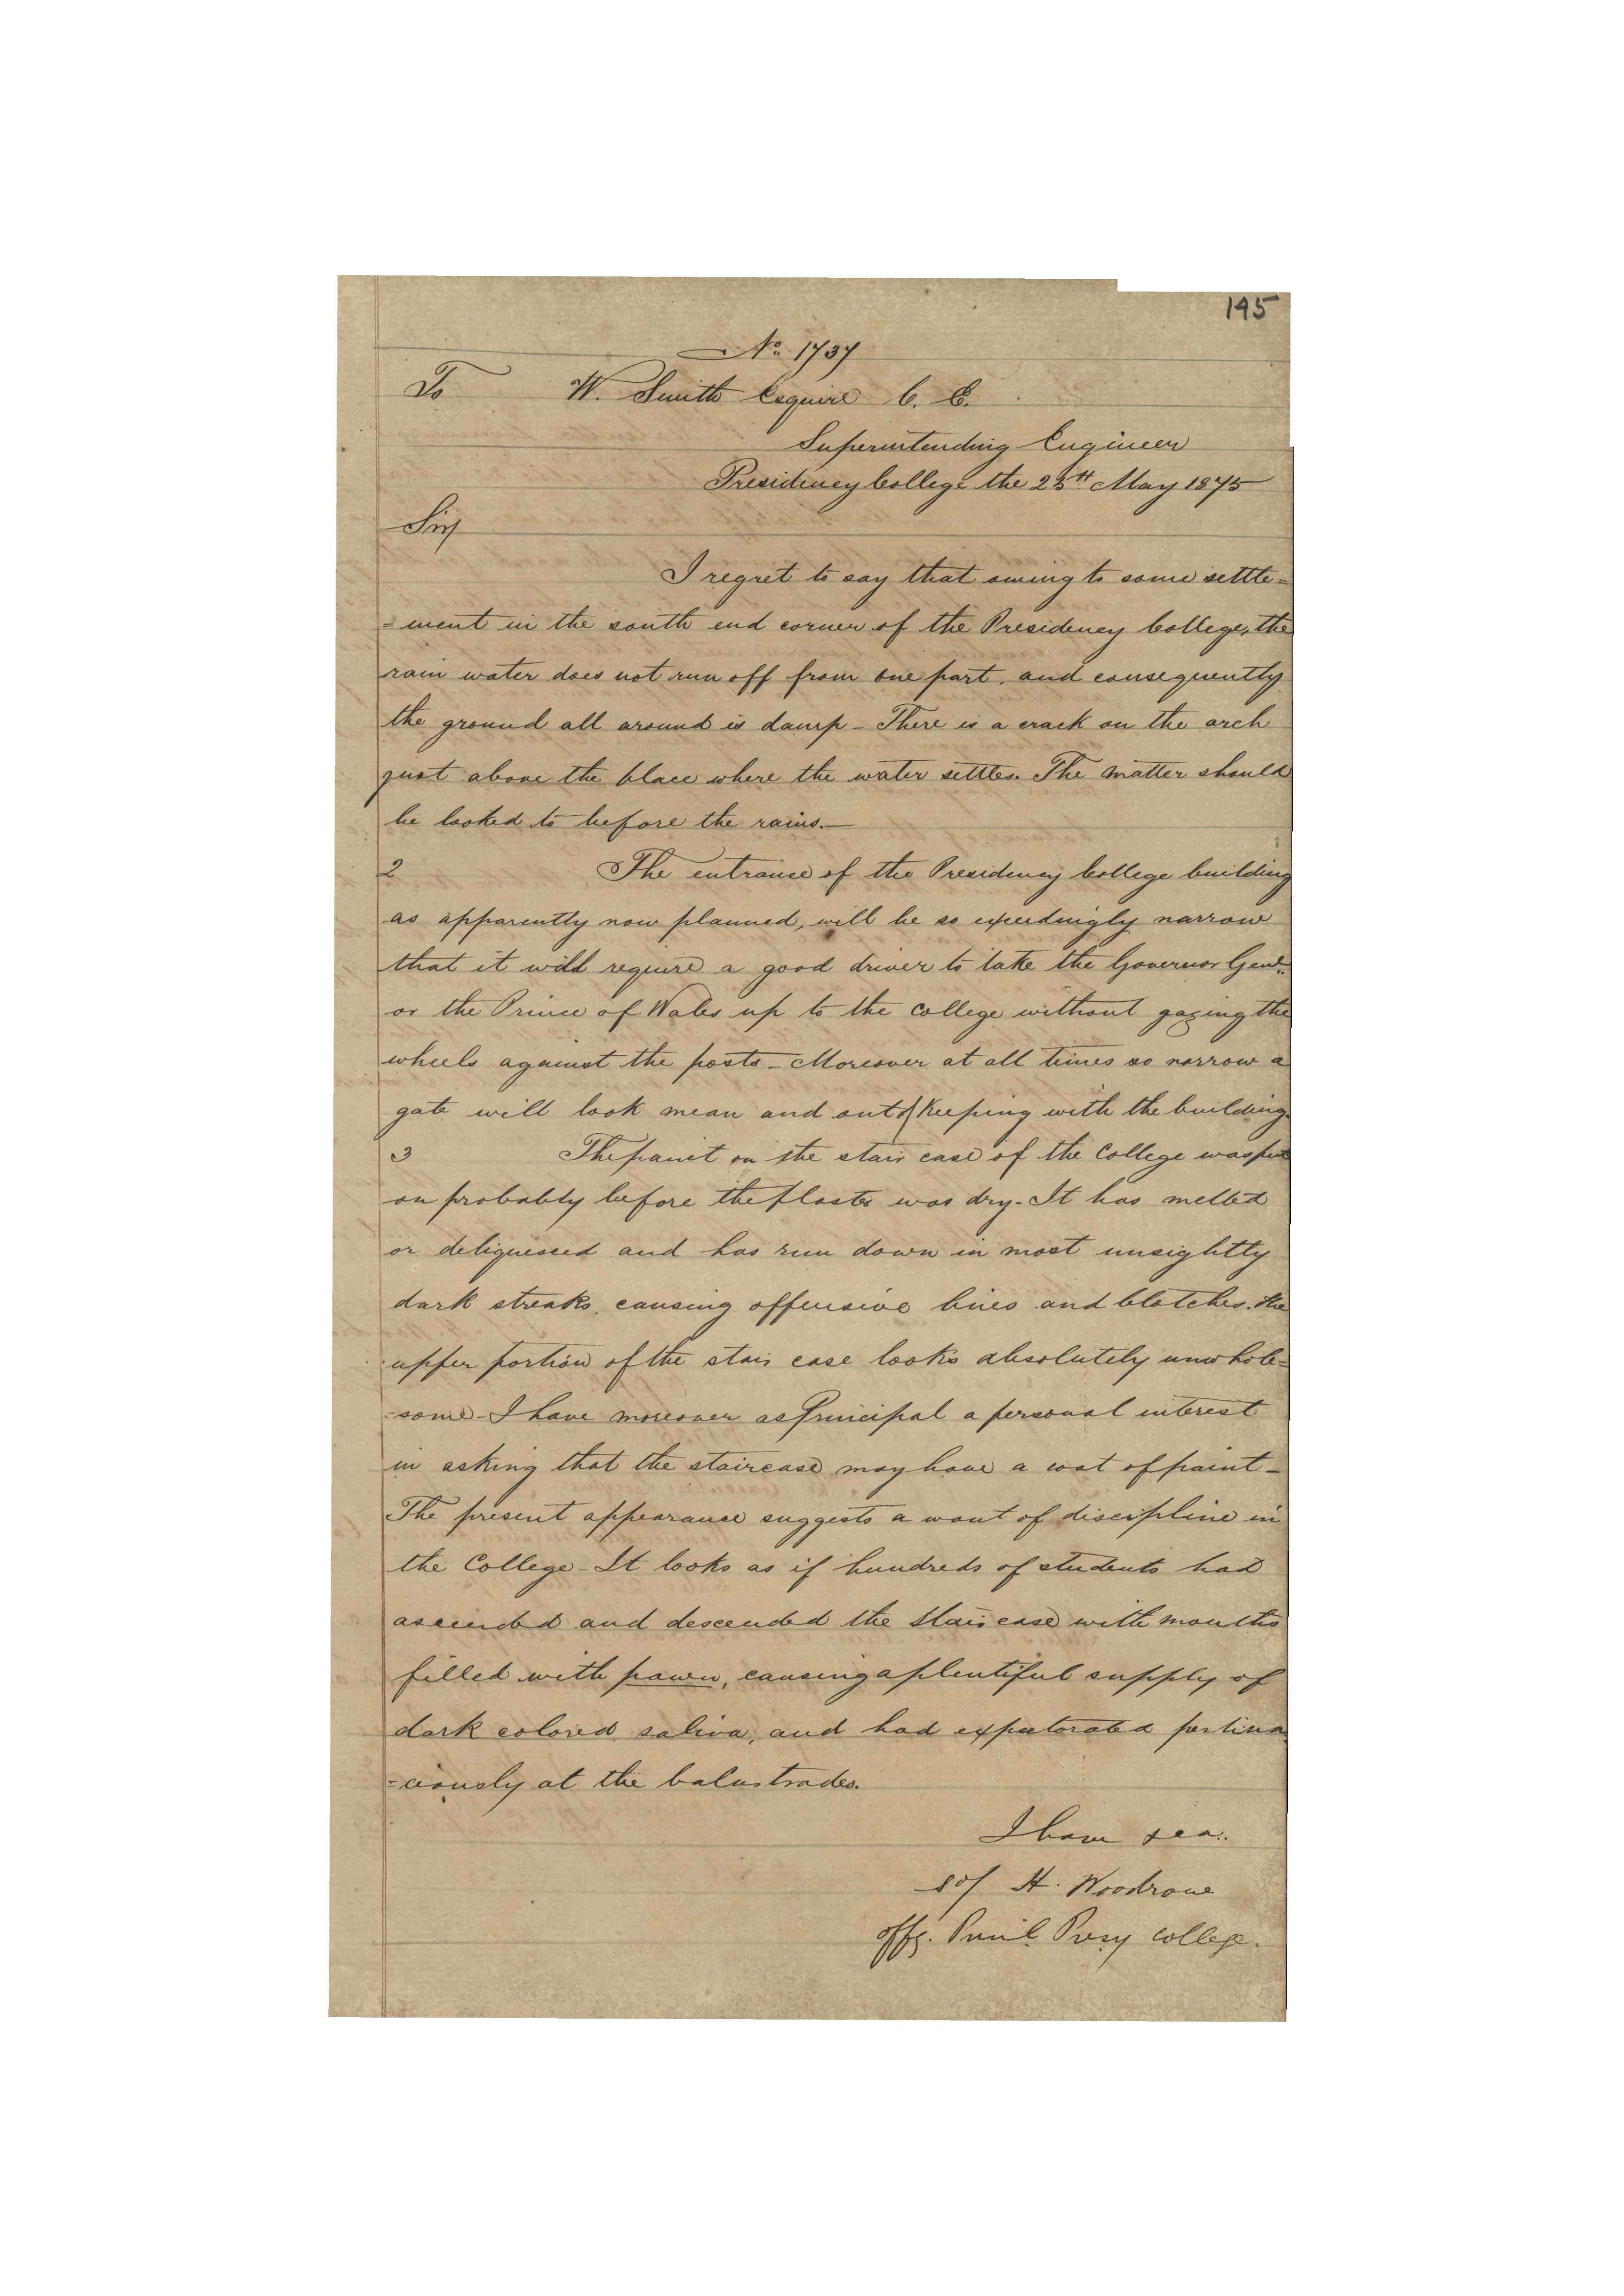 195
No. 1737
To W. Smith Esquire C. E.
Superintending Engineer
Presidency College the 25th May 1875
Sir
I regret to say that owing to some settle=
=ment in the south end corner of the Presidency College, the
rain water does not run off from one part, and consequently
the ground all around is damp - There is a crack on the arch
just above the place where the water settles. The matter should
be looked to before the rains.—
2 The entrance of the Presidency College building
as apparently now planned, will be so exceedingly narrow
that it will require a good driver to take the Governor Genl.
or the Prince of Wales up to the college without gazing the
wheels against the posts - Moreover at all times so narrow a
gate will look mean and out of keeping with the building.
3 The paint on the stair case of the College was put
on probably before the plaster was dry - It has melted
or deliquessed and has run down in most unsightly
dark streaks, causing offensive lines and blotches. The
upper portion of the stair case looks absolutely unwhole=
=some - I have moreover as Principal a personal interest
in asking that the staircase may have a coat of paint -
The present appearance suggests a want of discipline in
the College - It looks as if hundreds of students had
ascended and descended the Stair case with mouths
filled with pawn, causing a plentiful supply of
dark colored saliva, and had expectorated pertina
=ciously at the balustrades.
I have &ca.
Sd/ H. Woodrow
Offg. Princl. Presy College.